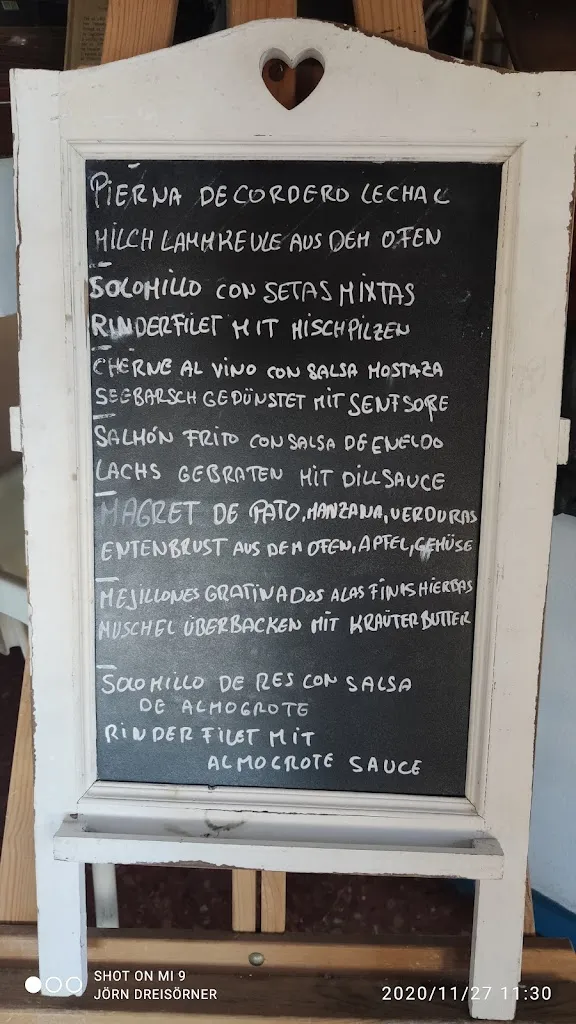 PIERNA DE CORDERO LECHAL
MILCH LAMMKEULE AUS DEM OFEN
SOLOMILLO CON SETAS MIXTAS
RINDERFILET MIT MISCHPILZEN
CHERNE AL VINO CON SALSA MOSTAZA
SEEBARSCH GEDÜNSTET MIT SENFSOßE
SALMÓN FRITO CON SALSA DE ENELDO
LACHS GEBRATEN MIT DILLSAUCE
MAGRET DE PATO, MANZANA, VERDURAS
ENTENBRUST AUS DEM OFEN, APFEL, GEMÜSE
MEJILLONES GRATINADOS A LAS FINIS HIERBAS
MUSCHEL ÜBERBACKEN MIT KRÄUTERBUTTER
SOLOMILLO DE RES CON SALSA
DE ALMOGROTE
RINDERFILET MIT
ALMOGROTE SAUCE
SHOT ON MI 9
JÖRN DREISÖRNER
2020/11/27 11:30